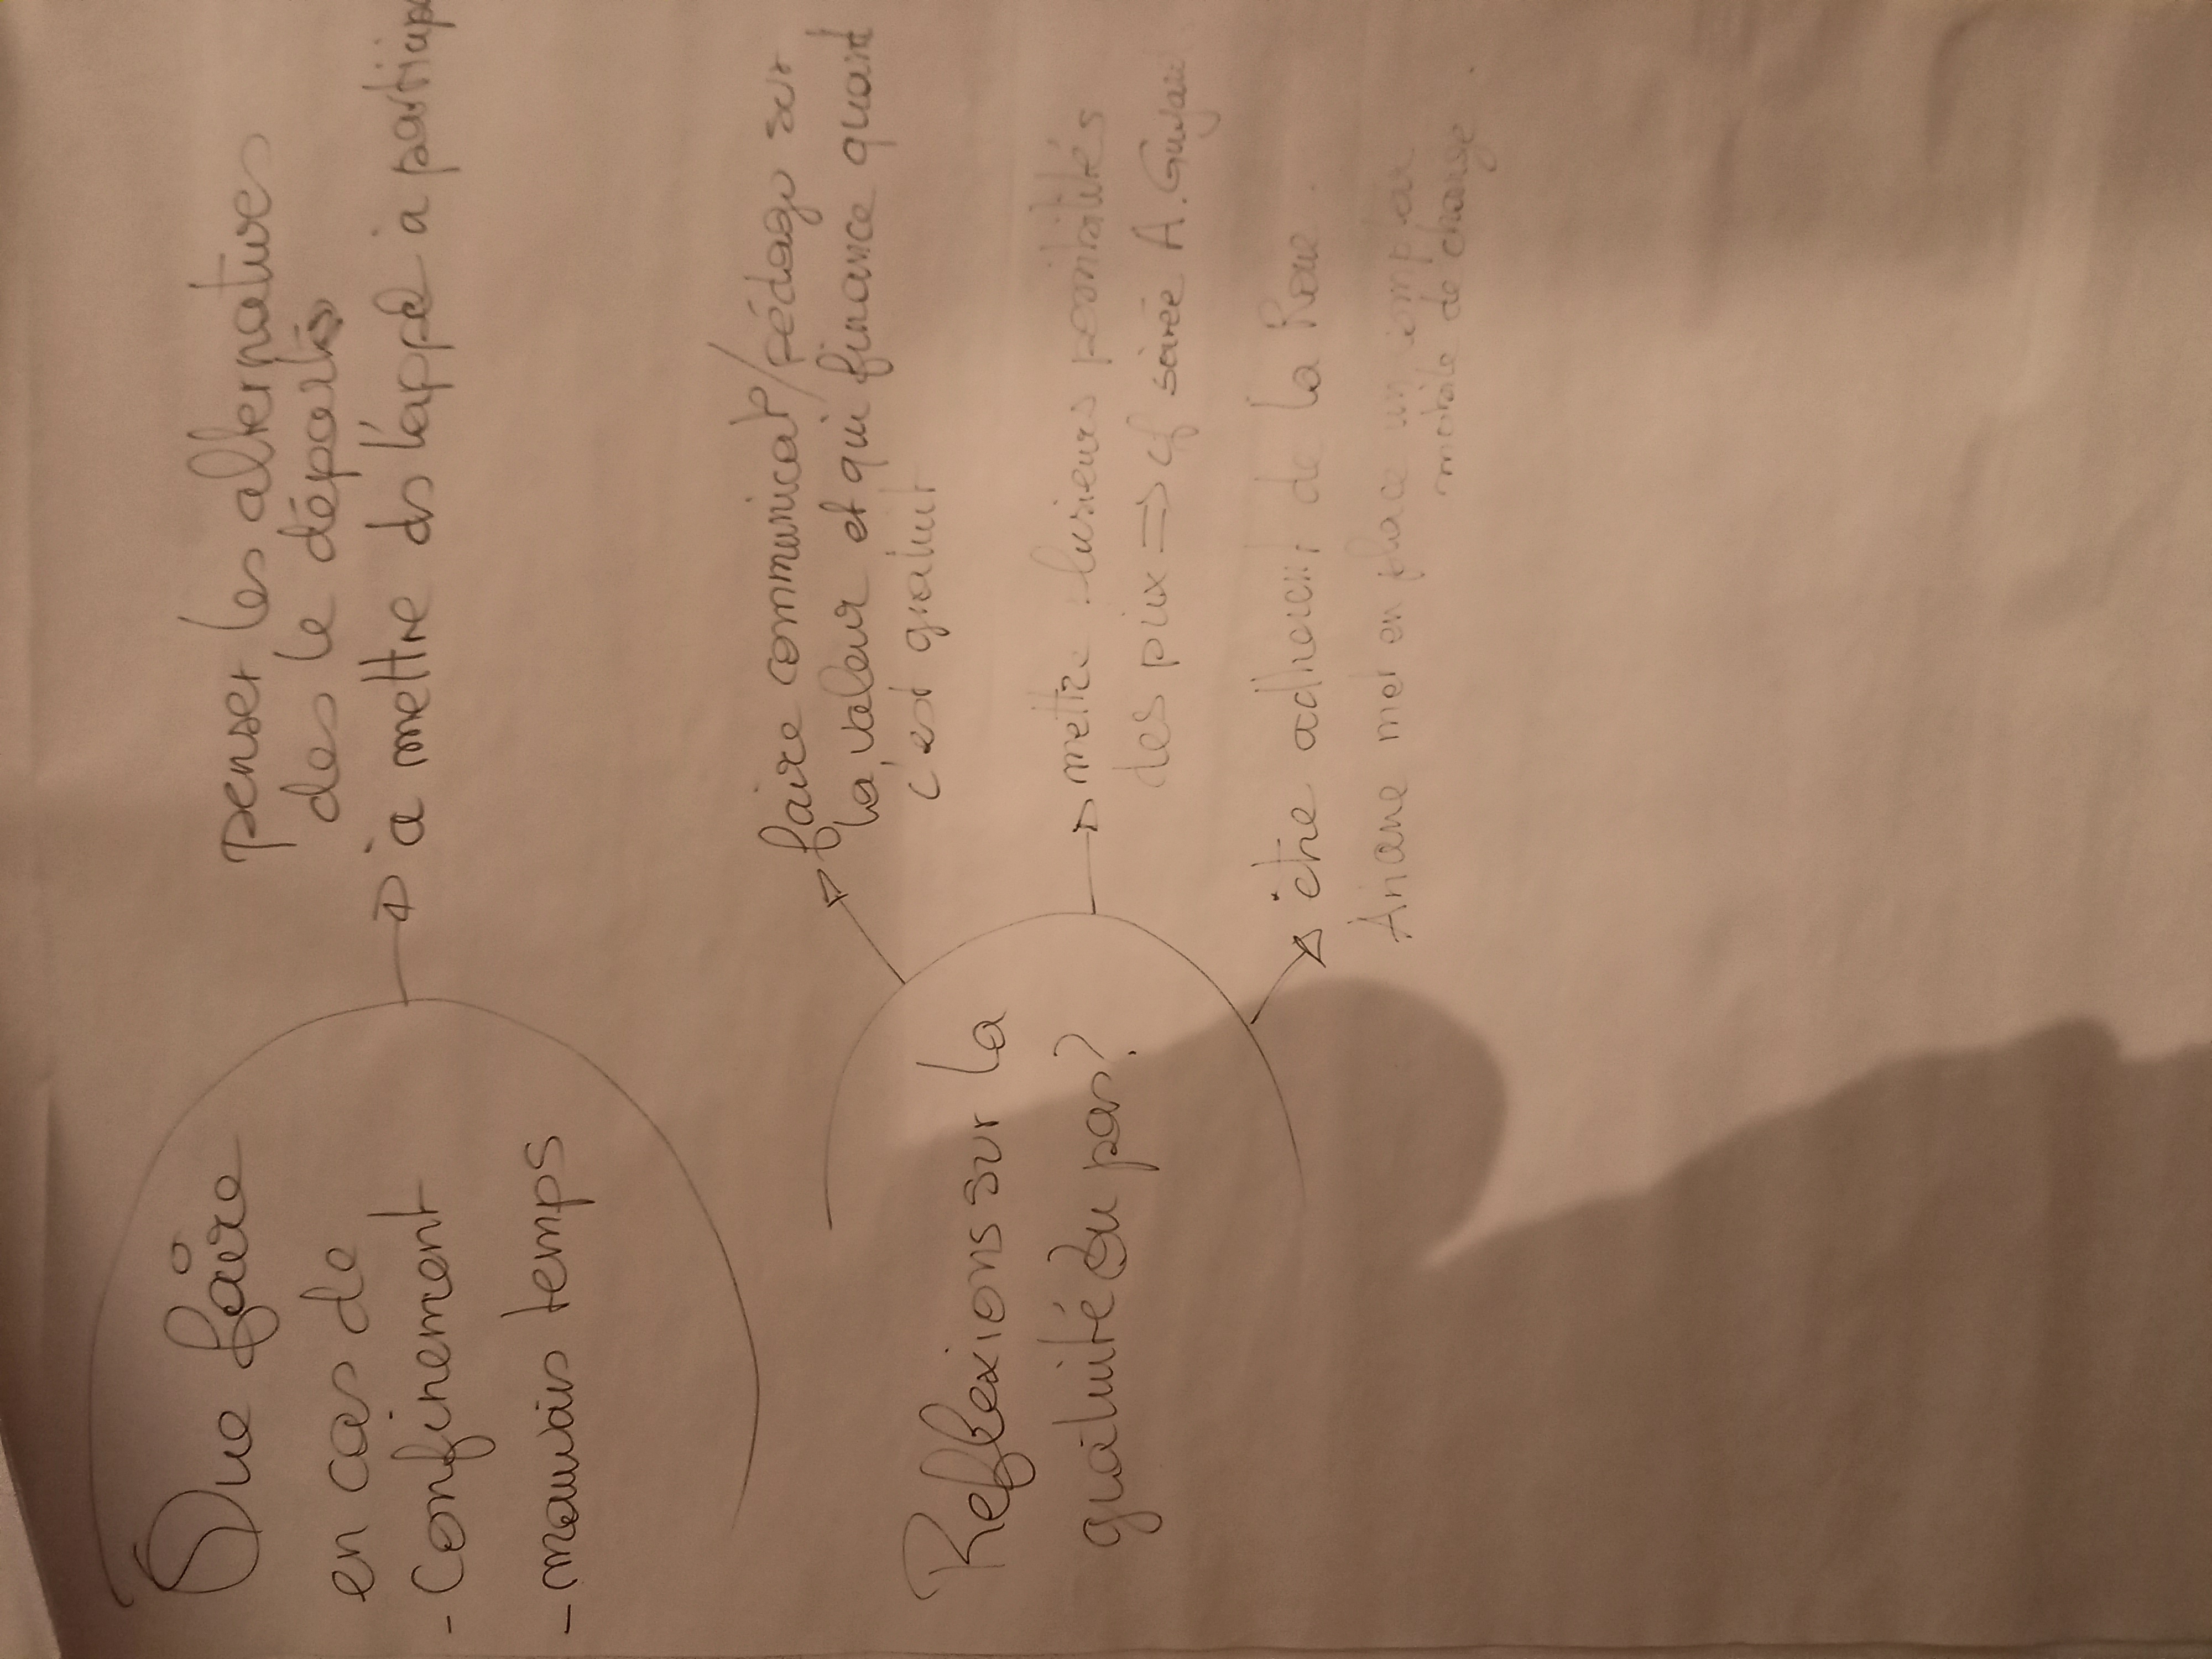 Que faire
en cas de
- Confinement
- mauvais temps
penser les alternatives
des le départ
→ à mettre ds l'appel à particip
Reflexions sur la
gratuité ou pas?
→ faire communicat°/pédago sur
la valeur et qui finance quand
c'est gratuit
→ mettre plusieurs possibilités
des prix => cf soirée A.
→ être adhérent de la Roue.
Ariane met en place un
mobile de change.